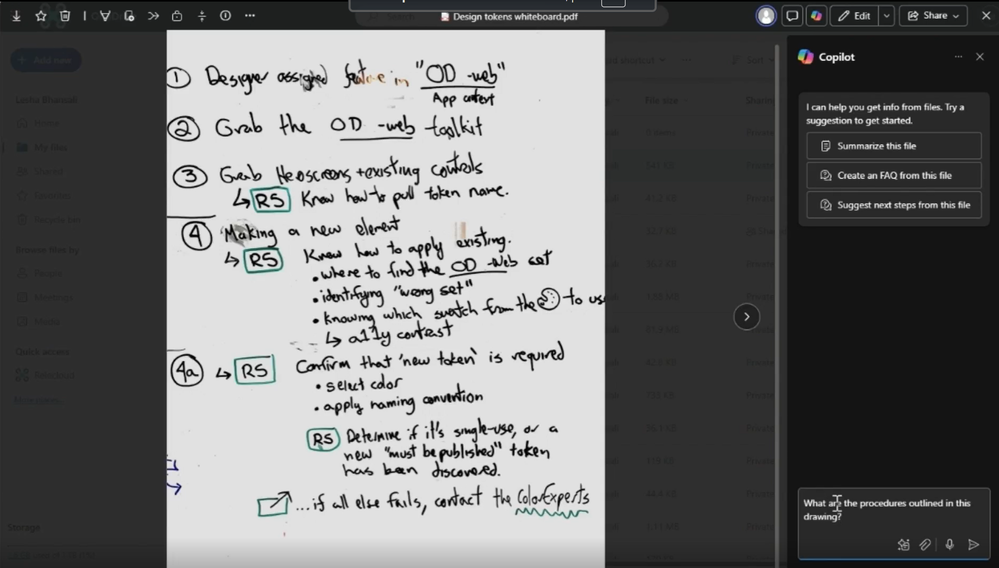 Design tokens whiteboard.pdf
Edit
Share
① Designer assigned feature in "OD -web"
App context
② Grab the OD -web toolkit
③ Grab Heroscreens + existing controls
↳ RS Know how to pull token name.
④ Making a new element
↳ RS Know how to apply existing.
• where to find the OD -Web set
• identifying "wrong set"
• knowing which swatch from the to use
↳ a11y contrast
4a ↳ RS Confirm that 'new token' is required
• select color
• apply naming convention
RS Determine if it's single-use, or a
new "must be published" token
has been discovered.
...if all else fails, contact the ColorExperts
Copilot
I can help you get info from files. Try a
suggestion to get started.
Summarize this file
Create an FAQ from this file
Suggest next steps from this file
What are the procedures outlined in this
drawing?
Add new
Home
My files
Shared
Favorites
Recycle bin
Browse files by
People
Meetings
Media
Quick access
Storage
File size
Sharing
Sort